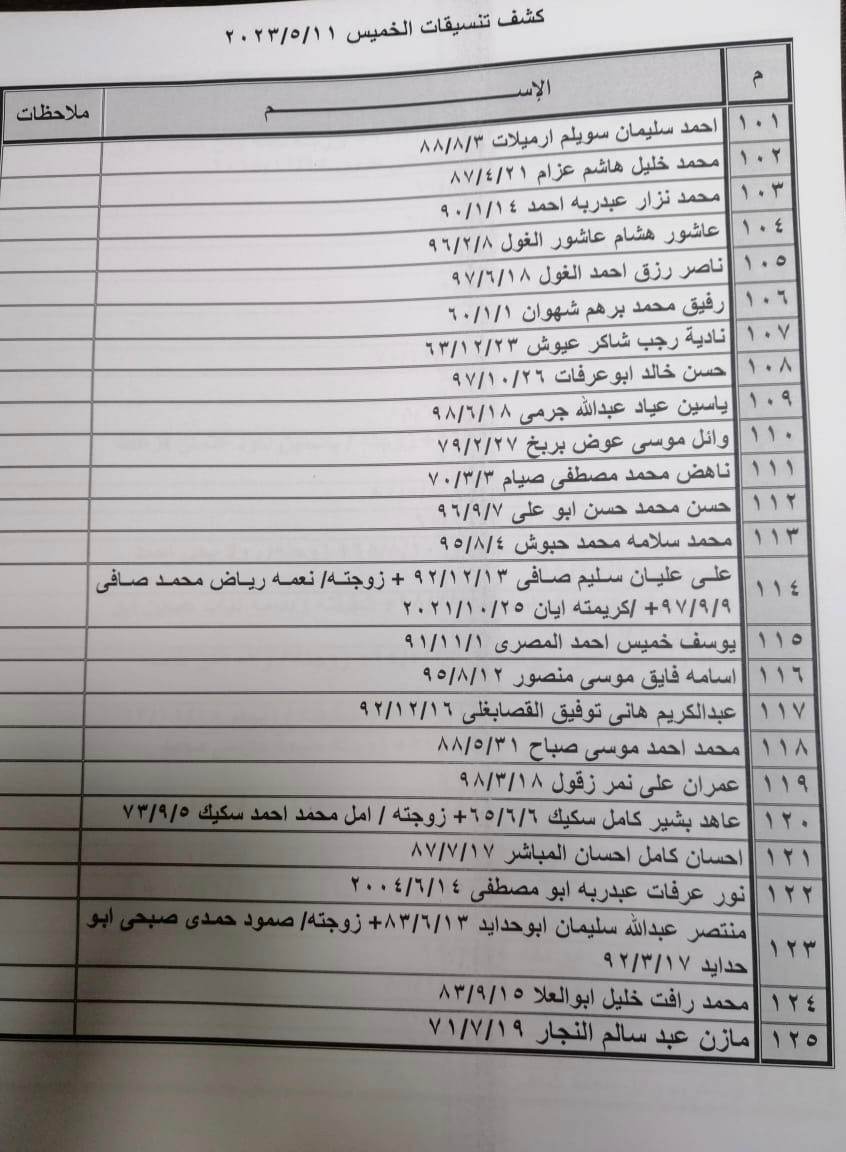 كشف تنسيقات الخميس ٢٠٢٣/٥/١١
م الإســـــم ملاحظات
١٠١ احمد سليمان سويلم ارميلات ٨٨/٨/٣
١٠٢ محمد خليل هاشم عزام ٨٧/٤/٢١
١٠٣ محمد نزار عبدربه احمد ٩٠/١/١٤
١٠٤ عاشور هشام عاشور الغول ٩٦/٢/٨
١٠٥ ناصر رزق احمد الغول ٩٧/٦/١٨
١٠٦ رفيق محمد برهم شهوان ٦٠/١/١
١٠٧ نادية رجب شاكر عيوش ٦٣/١٢/٢٣
١٠٨ حسن خالد ابوعرفات ٩٧/١٠/٢٦
١٠٩ ياسين عياد عبدالله جرمى ٩٨/٦/١٨
١١٠ وائل موسى عوض بربخ ٧٩/٢/٢٧
١١١ ناهض محمد مصطفى صيام ٧٠/٣/٣
١١٢ حسن محمد حسن ابو على ٩٦/٩/٧
١١٣ محمد سلامه محمد حبوش ٩٥/٨/٤
١١٤ على عليان سليم صافى ٩٢/١٢/١٣ + زوجته/ نعمه رياض محمد صافى
٩٧/٩/٩+ /كريمته ايان ٢٠٢١/١٠/٢٥
١١٥ يوسف خميس احمد المصرى ٩١/١١/١
١١٦ اسامه فايق موسى منصور ٩٥/٨/١٢
١١٧ عبدالكريم هانى توفيق القصابغلى ٩٢/١٢/١٦
١١٨ محمد احمد موسى صباح ٨٨/٥/٣١
١١٩ عمران على نمر زقول ٩٨/٣/١٨
١٢٠ عاهد بشير كامل سكيك ٦٥/٦/٦+ زوجته / امل محمد احمد سكيك ٧٣/٩/٥
١٢١ احسان كامل احسان المباشر ٨٧/٧/١٧
١٢٢ نور عرفات عبدربه ابو مصطفى ٢٠٠٤/٦/١٤
١٢٣ منتصر عبدالله سليمان ابوحدايد ٨٣/٦/١٣+ زوجته/ صمود حمدى صبحى ابو
حدايد ٩٢/٣/١٧
١٢٤ محمد رافت خليل ابوالعلا ٨٣/٩/١٥
١٢٥ مازن عبد سالم النجار ٧١/٧/١٩